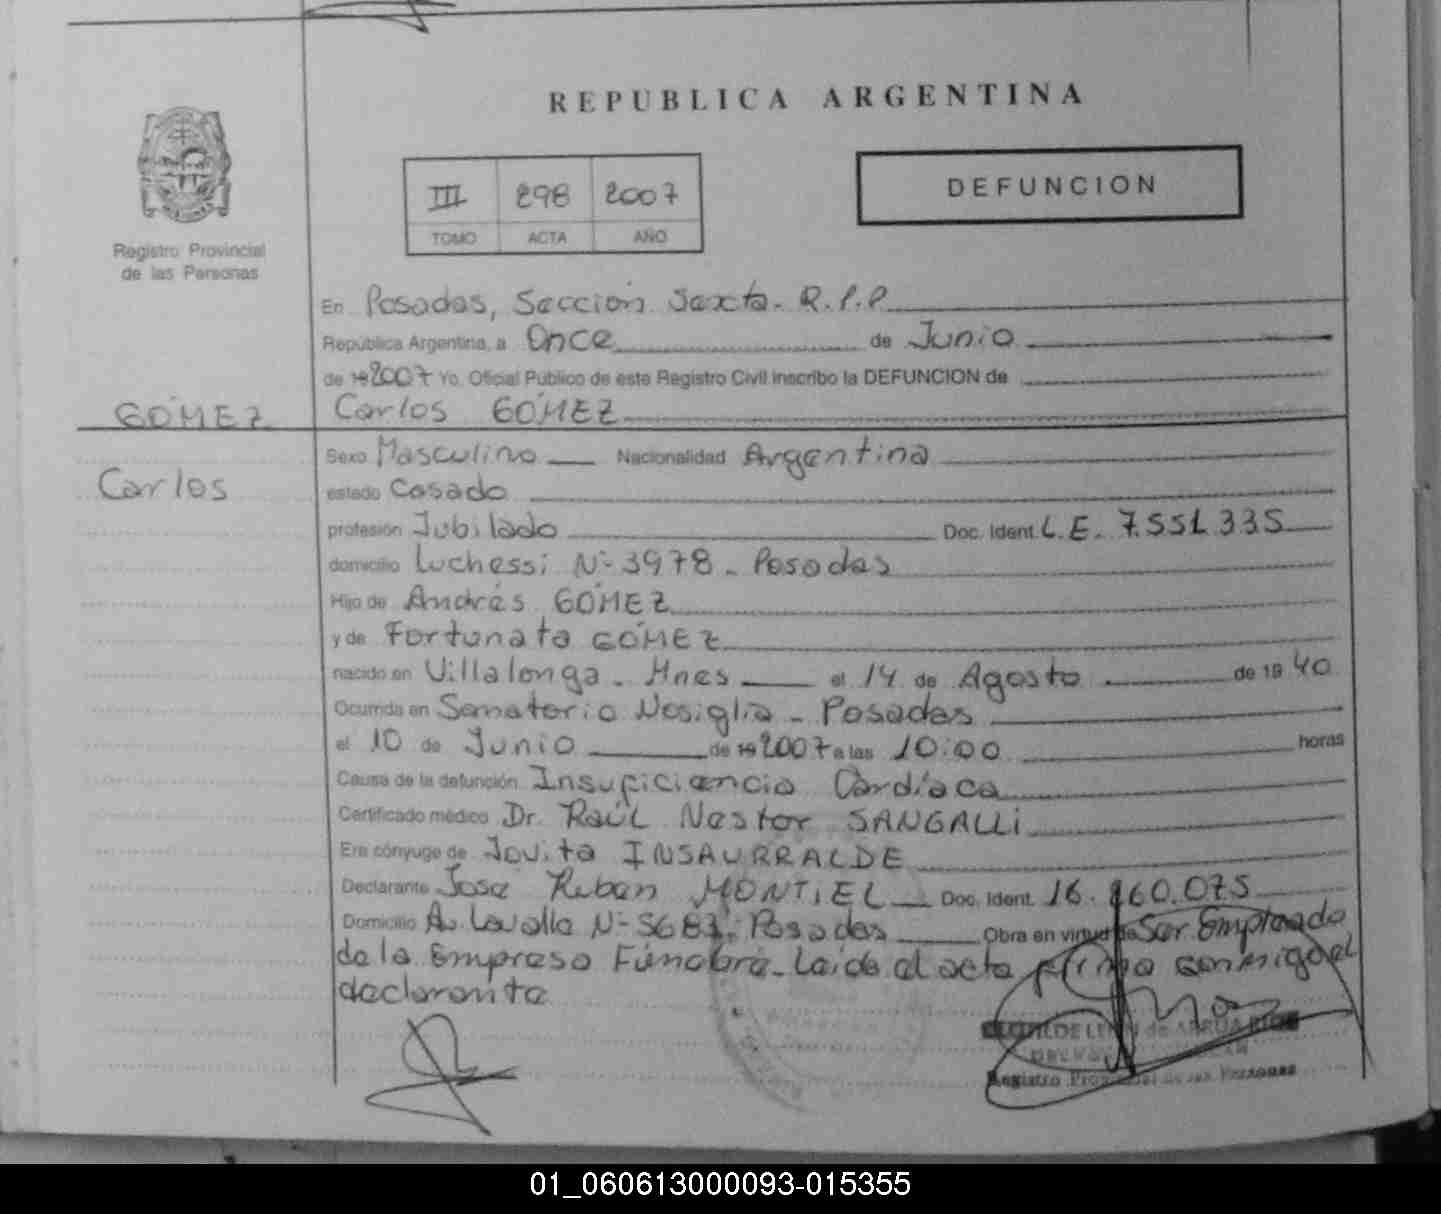 REPUBLICA ARGENTINA
III 298 2007
TOMO ACTA AÑO
DEFUNCION
Registro Provincial
de las Personas
En Posadas, Sección Sexta. R.P.P
República Argentina, a Once de Junio
de 192007 Yo. Oficial Público de este Registro Civil inscribo la DEFUNCION de
GÓMEZ Carlos GÓMEZ
Sexo Masculino Nacionalidad Argentina
Carlos estado Casado
profesión Jubilado Doc. Ident. L.E. 7.551.335
domicilio Luchessi Nº 3978 - Posadas
Hijo de Andrés GÓMEZ
y de Fortunata GÓMEZ
nacido en Villalonga - Mnes el 14 de Agosto de 19 40
Ocurrida en Sanatorio Nosiglia - Posadas
el 10 de Junio de 192007 a las 10:00 horas
Causa de la defunción Insuficiencia Cardíaca
Certificado médico Dr. Raúl Nestor SANGALLI
Era cónyuge de Jovita INSAURRALDE
Declarante José Ruben MONTIEL Doc. Ident. 16. 160.075
Domicilio Av. Lavalle Nº 5683, Posadas Obra en virtud de Ser Empleado
de la Empresa Fúnebre - Leida el acta firma conmigo el
declarante
de ARRUA
Registro Provincial de las Personas
01_060613000093-015355